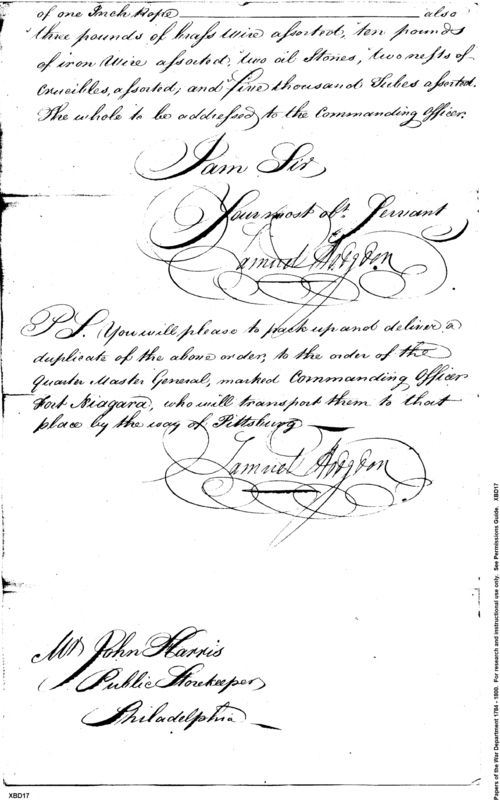 of one Inch Rope also
three pounds of brass Wire assorted, ten pounds
of iron Wire assorted, two oil Stones, two nests of
Crucibles, assorted; and five thousand Tubes assorted.
The whole to be addressed to the Commanding Officer.
I am Sir
Your most obt. Servant
Samuel Hodgdon
P.S. You will please to pack up and deliver a
duplicate of the above order, to the order of the
Quarter Master General, marked Commanding Officer
Fort Niagara, who will transport them to that
place by the way of Pittsburg
Samuel Hodgdon
Mr John Harris
Public Storekeeper
Philadelphia
XBD17
Papers of the War Department 1784 - 1800. For research and instructional use only. See Permissions Guide. XBD17